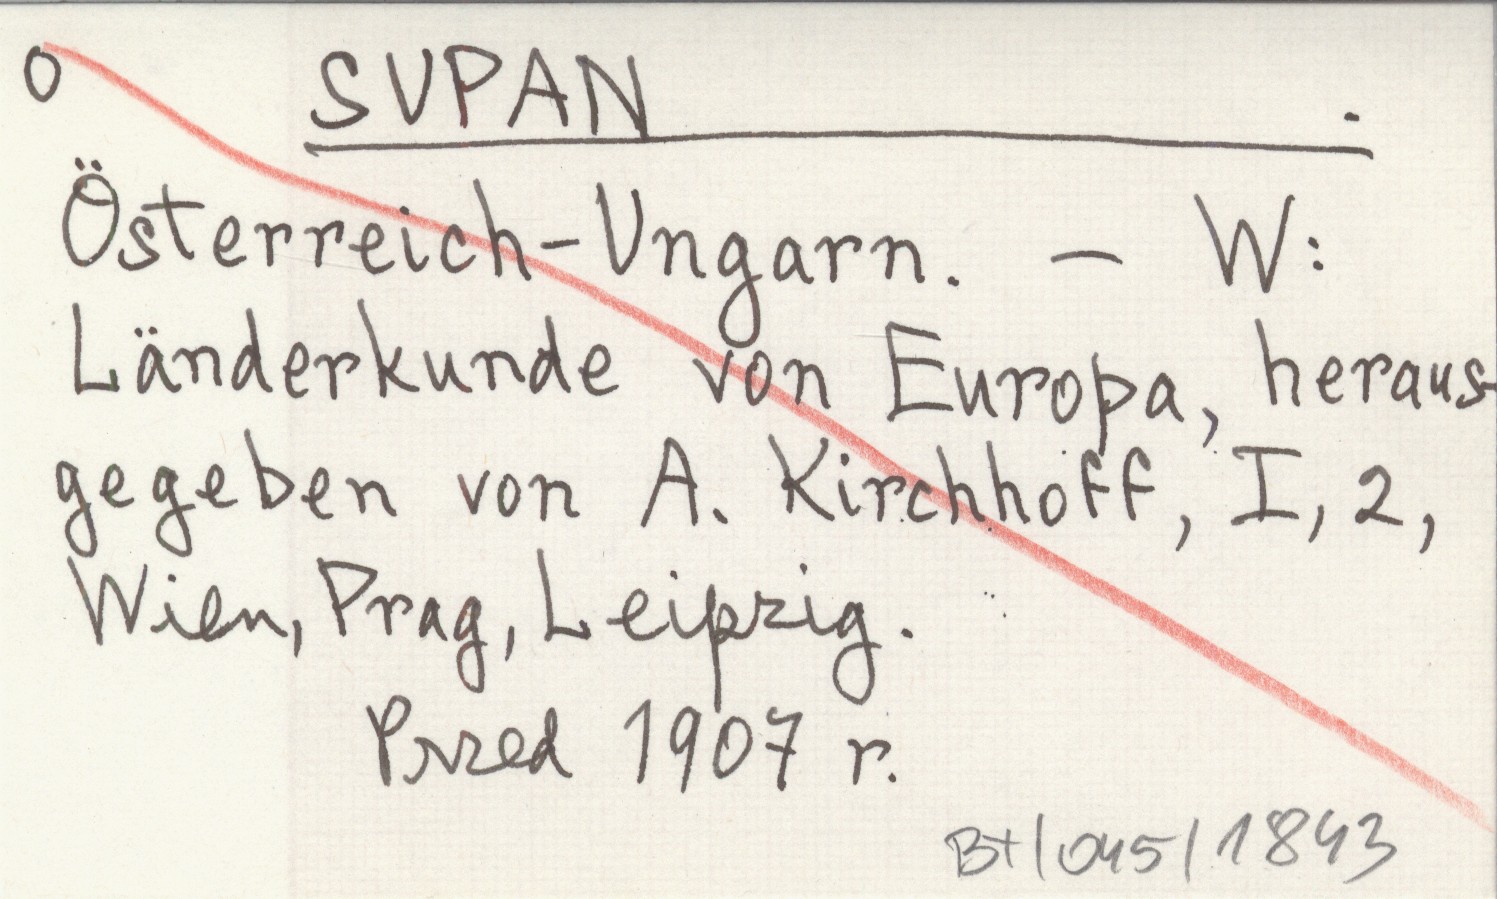 O SUPAN .
Österreich-Ungarn. — W:
Länderkunde von Europa, heraus-
gegeben von A. Kirchhoff, I, 2,
Wien, Prag, Leipzig.
Przed 1907 r.
Bt/045/1843